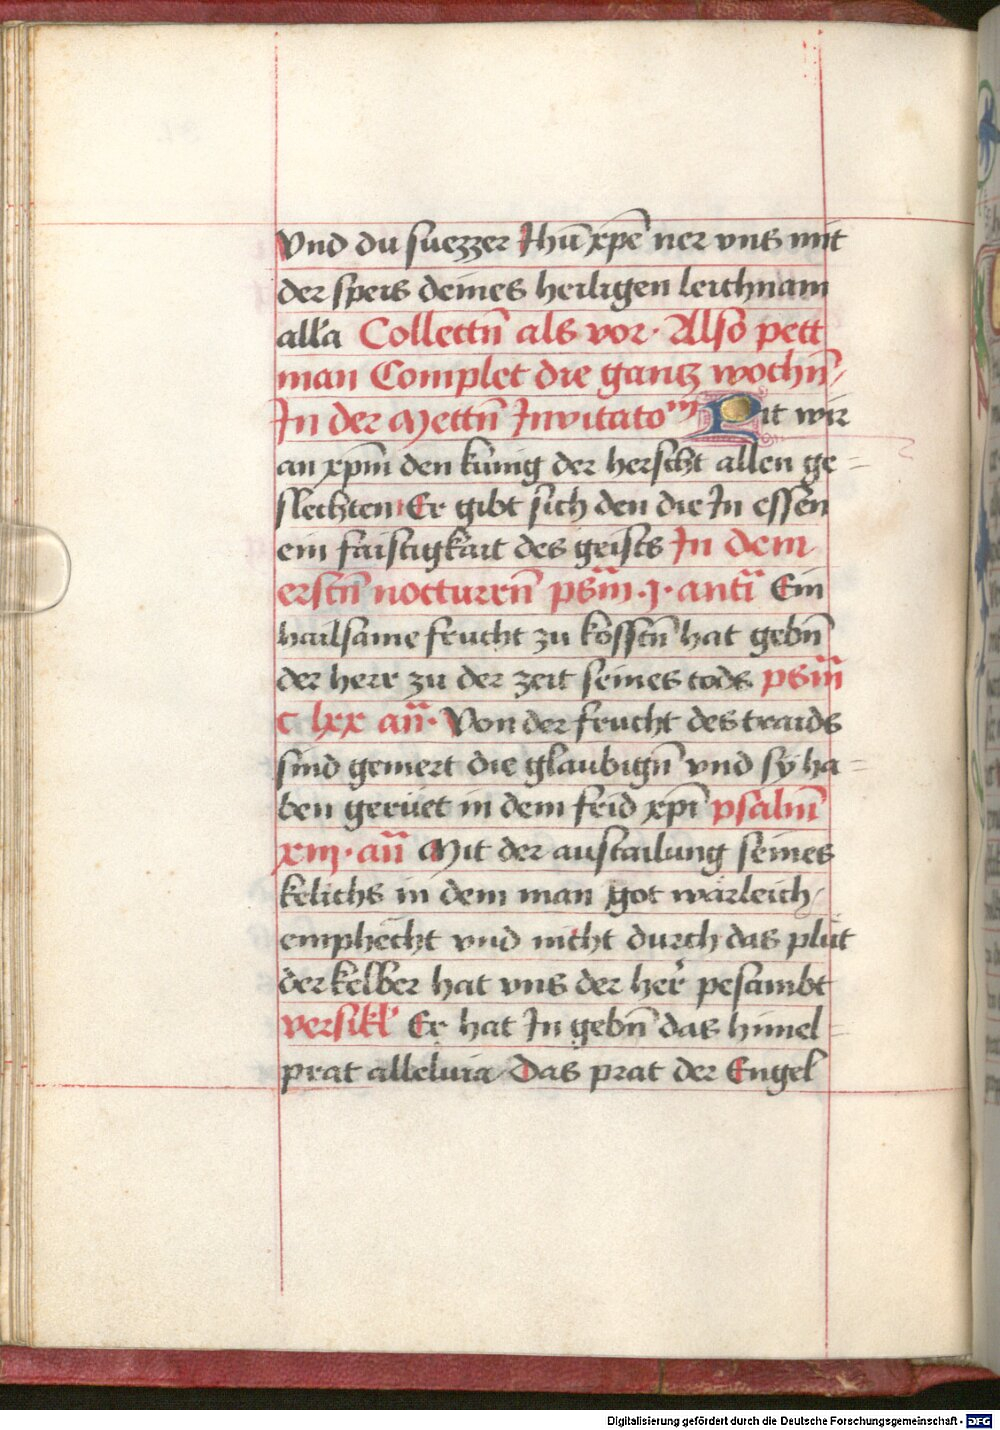 Vnd du suezzer Jhū xpē ner vns mit
der speis deines heiligen leichnam
all'a Collectn̄ als vor · Also pett
man Complet die gantz wochn̄ /
In der Mettn̄ Inuitatoᵐ Pit wir
an xpm̄ den kunig der herscht allen ge=
slechten Er gibt sich den die In essen
ein faistigkait des geists In dem
erstn̄ nocturrn̄ psm̄ · j · antī Ein
hailsame frucht zu kosstn̄ hat gebn̄
der herr zu der zeit seines tods psm̄
c lxx an̄ · Von der frucht des traids
sind gemert die glaubign̄ vnd sy ha=
ben gerüet in dem frid xpī psalm̄
xiij · an̄ Mit der austailung seines
kelichs in dem man got warleich /
emphecht vnd nicht durch das plůt
der kelber hat vns der her pesambt
versikl' Er hat In gebn̄ das himel=
prat alleluia Das prat der Engel
Digitalisierung gefördert durch die Deutsche Forschungsgemeinschaft - DFG